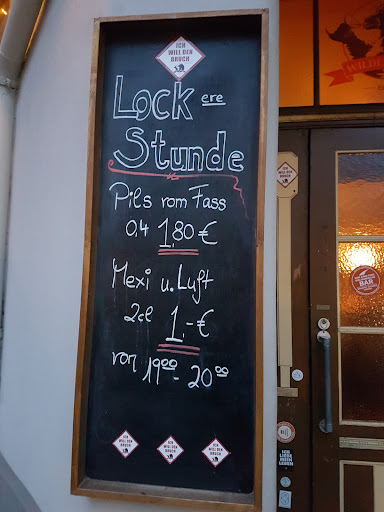 ICH
WILL DEN
BRUCH
Lock ere
Stunde
Pils vom Fass
0,4 1,80 €
Mexi u. Luft
2cl 1,- €
von 19⁰⁰ - 20⁰⁰
ICH
WILL DEN
BRUCH
ICH
WILL DEN
BRUCH
ICH
WILL DEN
BRUCH
WILD
BAR
ICH
LIEBE
MEIN
LEBEN